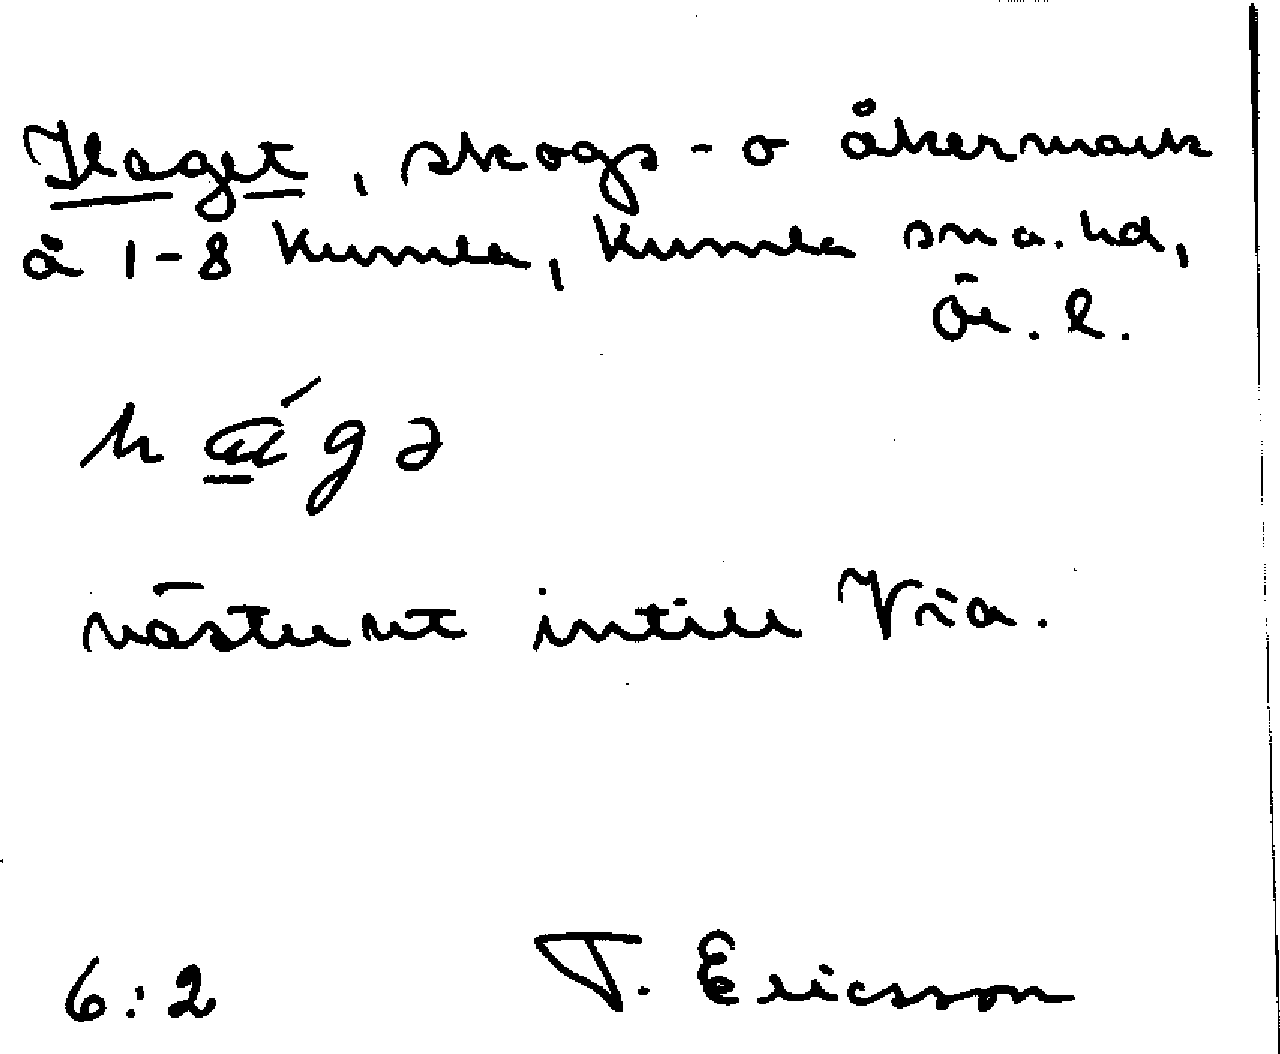 Haget, skogs- o åkermark
å 1-8 Kumla, Kumla sn a. hd,
Ör. l.
västerut intill Via.
6:2 T. Ericsson